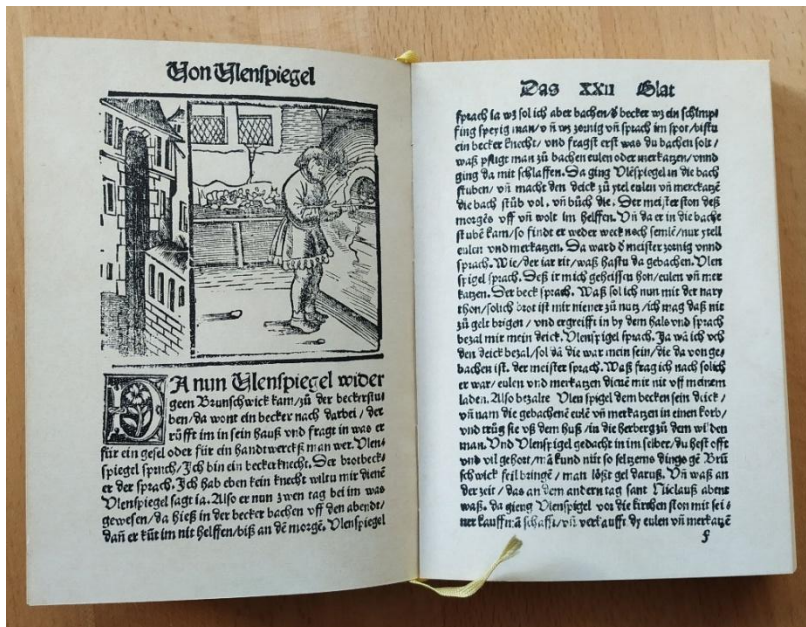 Von Vlenspiegel
DA nun Vlenspiegel wider
geen Brunschwick kam/zů der beckerstu
ben/da wont ein becker nach darbei/der
rüfft im in sein hauß vnd fragt in was er
für ein gesel oder für ein handtwerckß man wer. Vlen⸗
spiegel sprach/Ich bin ein beckerknecht. Der brotbeck⸗
er der sprach. Ich hab eben kein knecht wiltu mir dienẽ
Vlenspiegel sagt ia. Also er nun zwen tag bei im was
gewesen/da hieß in der becker bachen vff den abendt/
dañ er kũt im nit helffen/biß an dẽ morgẽ. Vlenspiegel
Das XXII Blat
sprach ia wz sol ich aber bachen/ď becker wz ein schimpf
fing speyig man/vñ wz zornig vñ sprach im spot/bistu
ein becker knecht/vnd fragst erst was du bachen solt/
waß pfligt man zů bachen eulen oder merkatzen/vnnd
ging da mit schlaffen. Da ging Vlẽspiegel in die bach
stuben/vñ macht den deick zů ytel eulen vñ merckatzẽ
die bach stüb vol, vñ bůch die. Der meister ston deß
morgẽs vff vñ wolt im helffen. Vñ da er in die bache
stubẽ kam/so findt er weder weck noch semlẽ/nur ytell
eulen vnd merkatzen. Da ward ď meister zornig vnnd
sprach. Wie/der iar rit/waß hastu da gebachen. Vlen
spigel sprach. Deß ir mich geheissen hon/eulen vñ mer
katzen. Der beck sprach. Waß sol ich nun mit der nary
thon/solich brot ist mir niener zů nutz/ich mag daß nit
zů gelt brigen/vnd ergreifft in by dem hals vnd sprach
bezal mir mein deick. Vlenspigel sprach. Ja wã ich vch
den deick bezal/sol dã die war mein sein/die da von ge⸗
bachen ist. der meister sprach. Waß frag ich nach solich
er war/eulen vnd merkatzen dienẽ mir nit vff meinem
laden. Also bezalte Vlen spigel dem becken sein deick/
vñ nam die gebachenẽ eulẽ vñ merkatzen in einen korb/
vnd trůg sie vß dem huß/in die herberg zů dem wilden
man. Vnd Vlenspigel gedacht in im selber/du hest offt
vnd vil gehort/mã kund nüt so seltzems dings gẽ Brũ
schwick feil bringẽ/man lößt gel daruß. Vñ waß an
der zeit/das an dem andern tag sant Niclauß abent
waß. da gieng Vlenspigel vor die kirchen ston mit sei⸗
ner kauffmãschafft/vñ verkaufft dy eulen vñ merkatzẽ
f